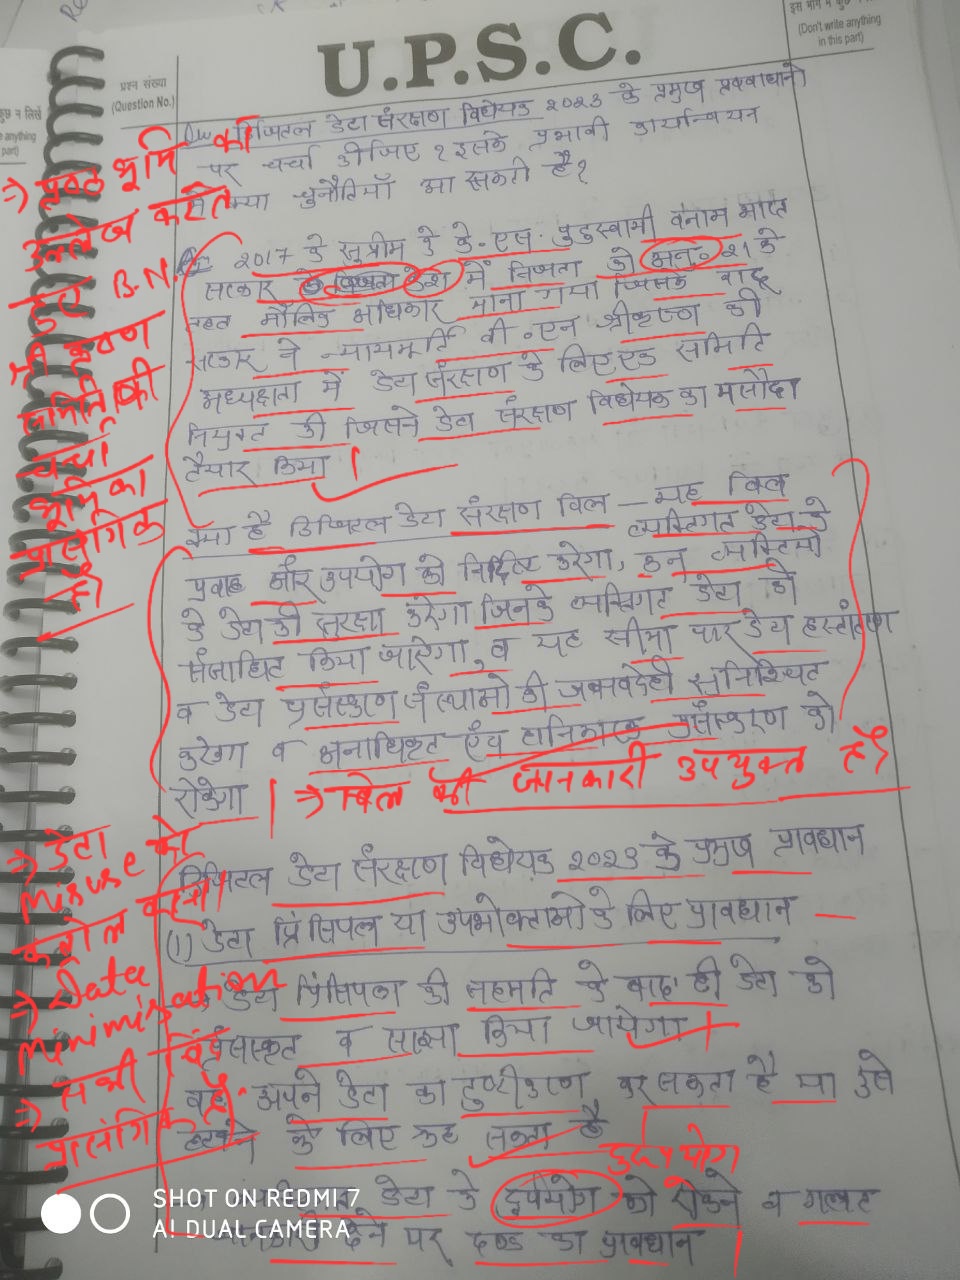 U.P.S.C.
प्रश्न संख्या
(Question No.)
(Don't write anything
in this part)
डिजिटल डेटा संरक्षण विधेयक 2023 के प्रमुख प्रावधानों
पर चर्चा कीजिए ? इसके प्रभावी कार्यान्वयन
में क्या चुनौतियाँ आ सकती है ?
2017 के सुप्रीम के के. एस. पुट्टुस्वामी बनाम भारत
सरकार में निजता को अनु. 21 के
तहत मौलिक अधिकार माना गया जिसके बाद
सरकार ने न्यायमूर्ति बी. एन श्रीकृष्ण की
अध्यक्षता में डेटा संरक्षण के लिए एक समिति
नियुक्त की जिसने डेटा संरक्षण विधेयक का मसौदा
तैयार किया।
क्या है डिजिटल डेटा संरक्षण बिल — यह बिल
व्यक्तिगत डेटा के
प्रवाह और उपयोग को निर्दिष्ट करेगा, उन व्यक्तियों
के डेटा की सुरक्षा करेगा जिनके व्यक्तिगत डेटा को
संसाधित किया जाऐगा, व यह सीमा पार डेटा हस्तांतरण
व डेटा प्रसंस्करण संस्थाओ की जबावदेही सुनिश्चित
करेगा व अनाधिकृत एंव हानिकारक प्रसंस्करण को
रोकेगा |
⇒ बिल की जानकारी उपयुक्त है।
डिजिटल डेटा संरक्षण विधेयक 2023 के प्रमुख प्रावधान
(1) डेटा प्रिंसिपल या उपभोक्ताओ के लिए प्रावधान —
डेटा प्रिंसिपल की सहमति के बाद ही डेटा को
प्रसंस्कृत व साझा किया जायेगा।
वह अपने डेटा का दुष्टीकरण कर सकता है या उसे
हटाने के लिए कह सकता है
दुरुपयोग
डेटा के दुर्पयोग को रोकने व गलत
देने पर दण्ड का प्रावधान
⇒ पृष्ठ भूमि का
उल्लेख करते
हुए B.N.
श्री कृष्ण
समिति की
चर्चा
भूमिका
प्रासंगिक
है।
⇒ डेटा
misuse को
कंट्रोल करना
⇒ Data
minimisation
⇒ सभी बिंदु
प्रासंगिक है।
SHOT ON REDMI 7
AI DUAL CAMERA